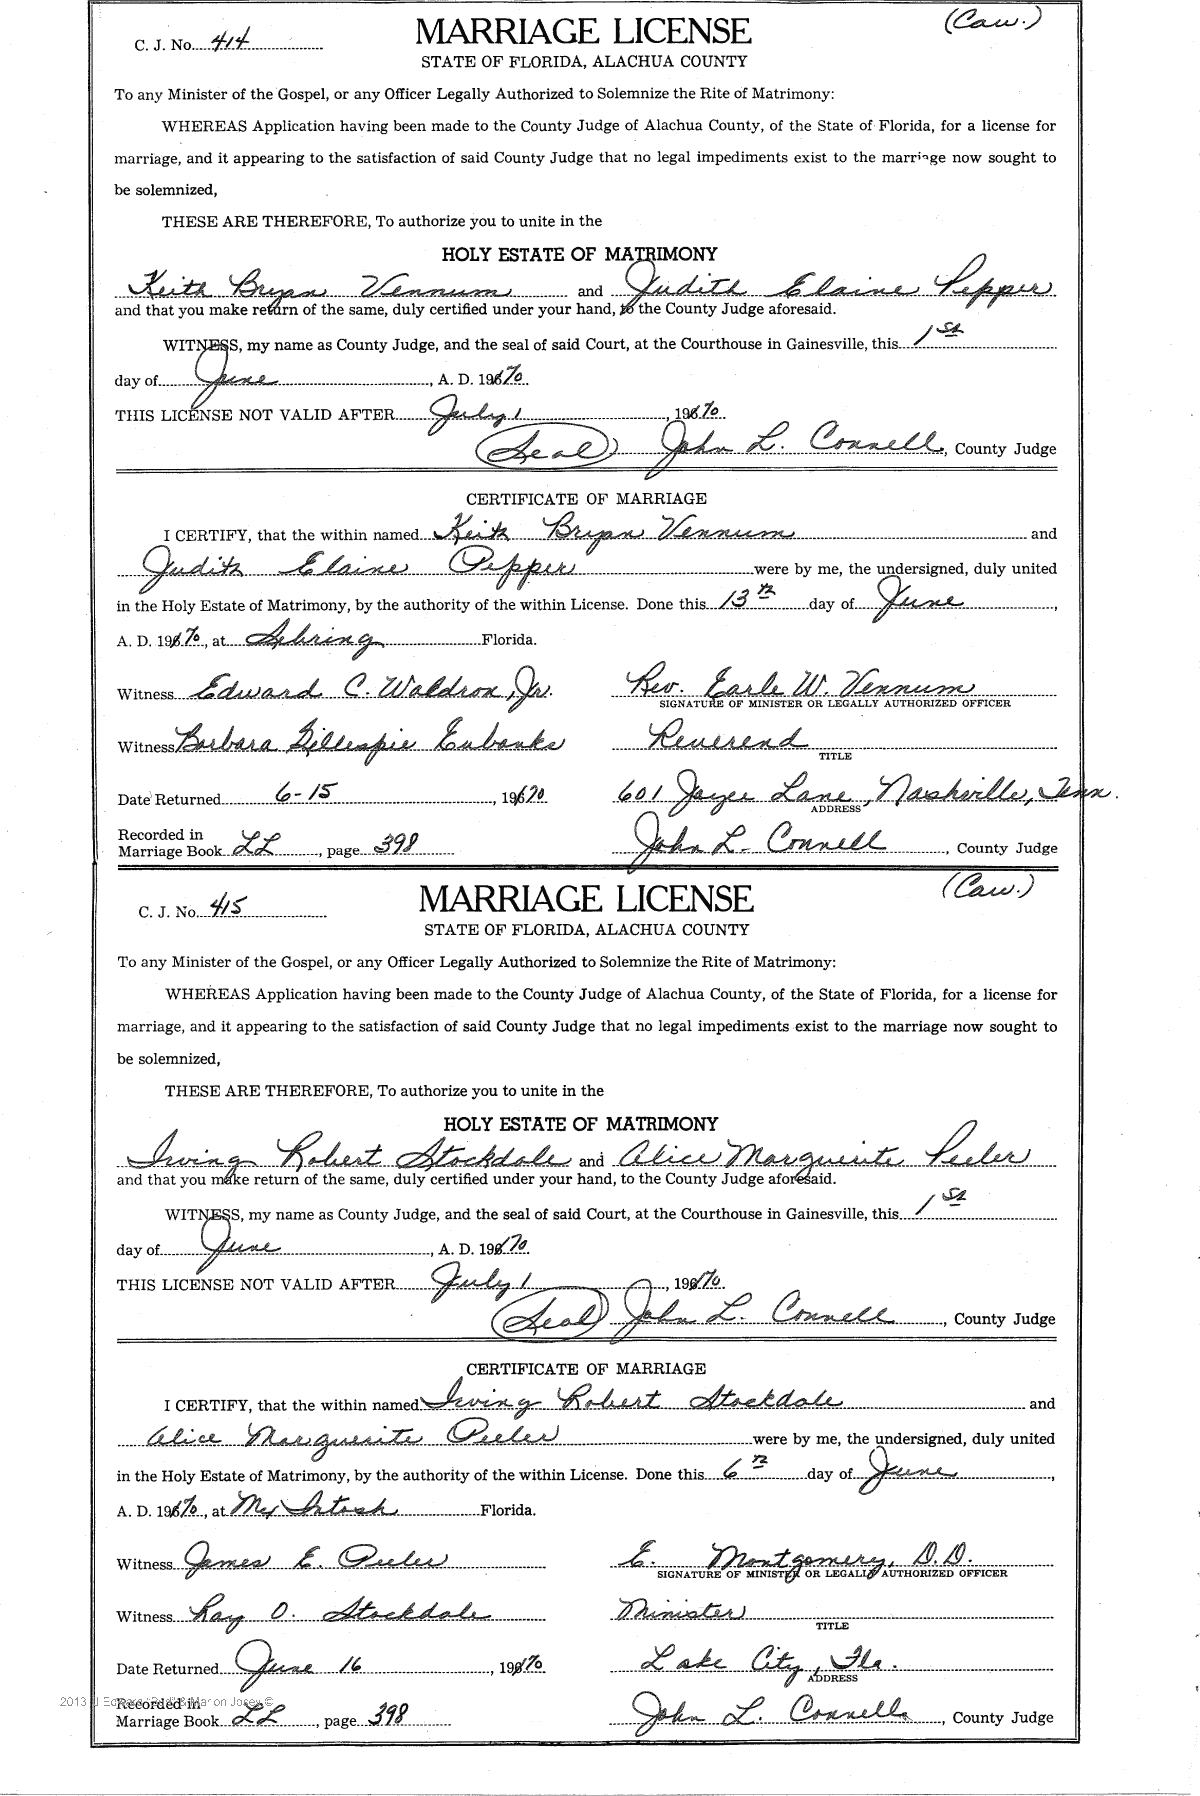 (Caw.)
C. J. No. 414
MARRIAGE LICENSE
STATE OF FLORIDA, ALACHUA COUNTY
To any Minister of the Gospel, or any Officer Legally Authorized to Solemnize the Rite of Matrimony:
WHEREAS Application having been made to the County Judge of Alachua County, of the State of Florida, for a license for
marriage, and it appearing to the satisfaction of said County Judge that no legal impediments exist to the marriage now sought to
be solemnized,
THESE ARE THEREFORE, To authorize you to unite in the
HOLY ESTATE OF MATRIMONY
Keith Bryan Vennum and Judith Elaine Pepper
and that you make return of the same, duly certified under your hand, to the County Judge aforesaid.
WITNESS, my name as County Judge, and the seal of said Court, at the Courthouse in Gainesville, this 1st
day of June, A. D. 1970
THIS LICENSE NOT VALID AFTER July 1, 1970
(Seal) John L. Connell, County Judge
CERTIFICATE OF MARRIAGE
I CERTIFY, that the within named Keith Bryan Vennum and
Judith Elaine Pepper were by me, the undersigned, duly united
in the Holy Estate of Matrimony, by the authority of the within License. Done this 13th day of June,
A. D. 1970, at Sebring Florida.
Witness Edward C. Waldron, Jr. Rev. Earle W. Vennum
SIGNATURE OF MINISTER OR LEGALLY AUTHORIZED OFFICER
Witness Barbara Gillespie Eubanks Reverend
TITLE
Date Returned 6-15, 1970 601 Jayee Lane, Nashville, Tenn.
ADDRESS
Recorded in
Marriage Book LL, page 398 John L. Connell, County Judge
(Caw.)
C. J. No. 415
MARRIAGE LICENSE
STATE OF FLORIDA, ALACHUA COUNTY
To any Minister of the Gospel, or any Officer Legally Authorized to Solemnize the Rite of Matrimony:
WHEREAS Application having been made to the County Judge of Alachua County, of the State of Florida, for a license for
marriage, and it appearing to the satisfaction of said County Judge that no legal impediments exist to the marriage now sought to
be solemnized,
THESE ARE THEREFORE, To authorize you to unite in the
HOLY ESTATE OF MATRIMONY
Irving Robert Stockdale and Alice Marguerite Peeler
and that you make return of the same, duly certified under your hand, to the County Judge aforesaid.
WITNESS, my name as County Judge, and the seal of said Court, at the Courthouse in Gainesville, this 1st
day of June, A. D. 1970
THIS LICENSE NOT VALID AFTER July 1, 1970
(Seal) John L. Connell, County Judge
CERTIFICATE OF MARRIAGE
I CERTIFY, that the within named Irving Robert Stockdale and
Alice Marguerite Peeler were by me, the undersigned, duly united
in the Holy Estate of Matrimony, by the authority of the within License. Done this 6th day of June,
A. D. 1970, at McIntosh Florida.
Witness James E. Peeler E. Montgomery, D.D.
SIGNATURE OF MINISTER OR LEGALLY AUTHORIZED OFFICER
Witness Ray O. Stockdale Minister
TITLE
Date Returned June 16, 1970 Lake City, Fla.
ADDRESS
Recorded in
Marriage Book LL, page 398 John L. Connell, County Judge